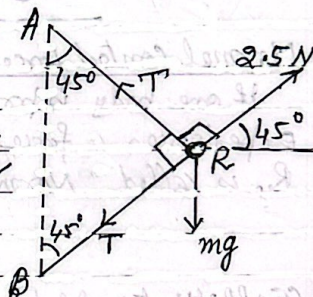 A
45°
T
2.5N
45°
R
45°
T
mg
B